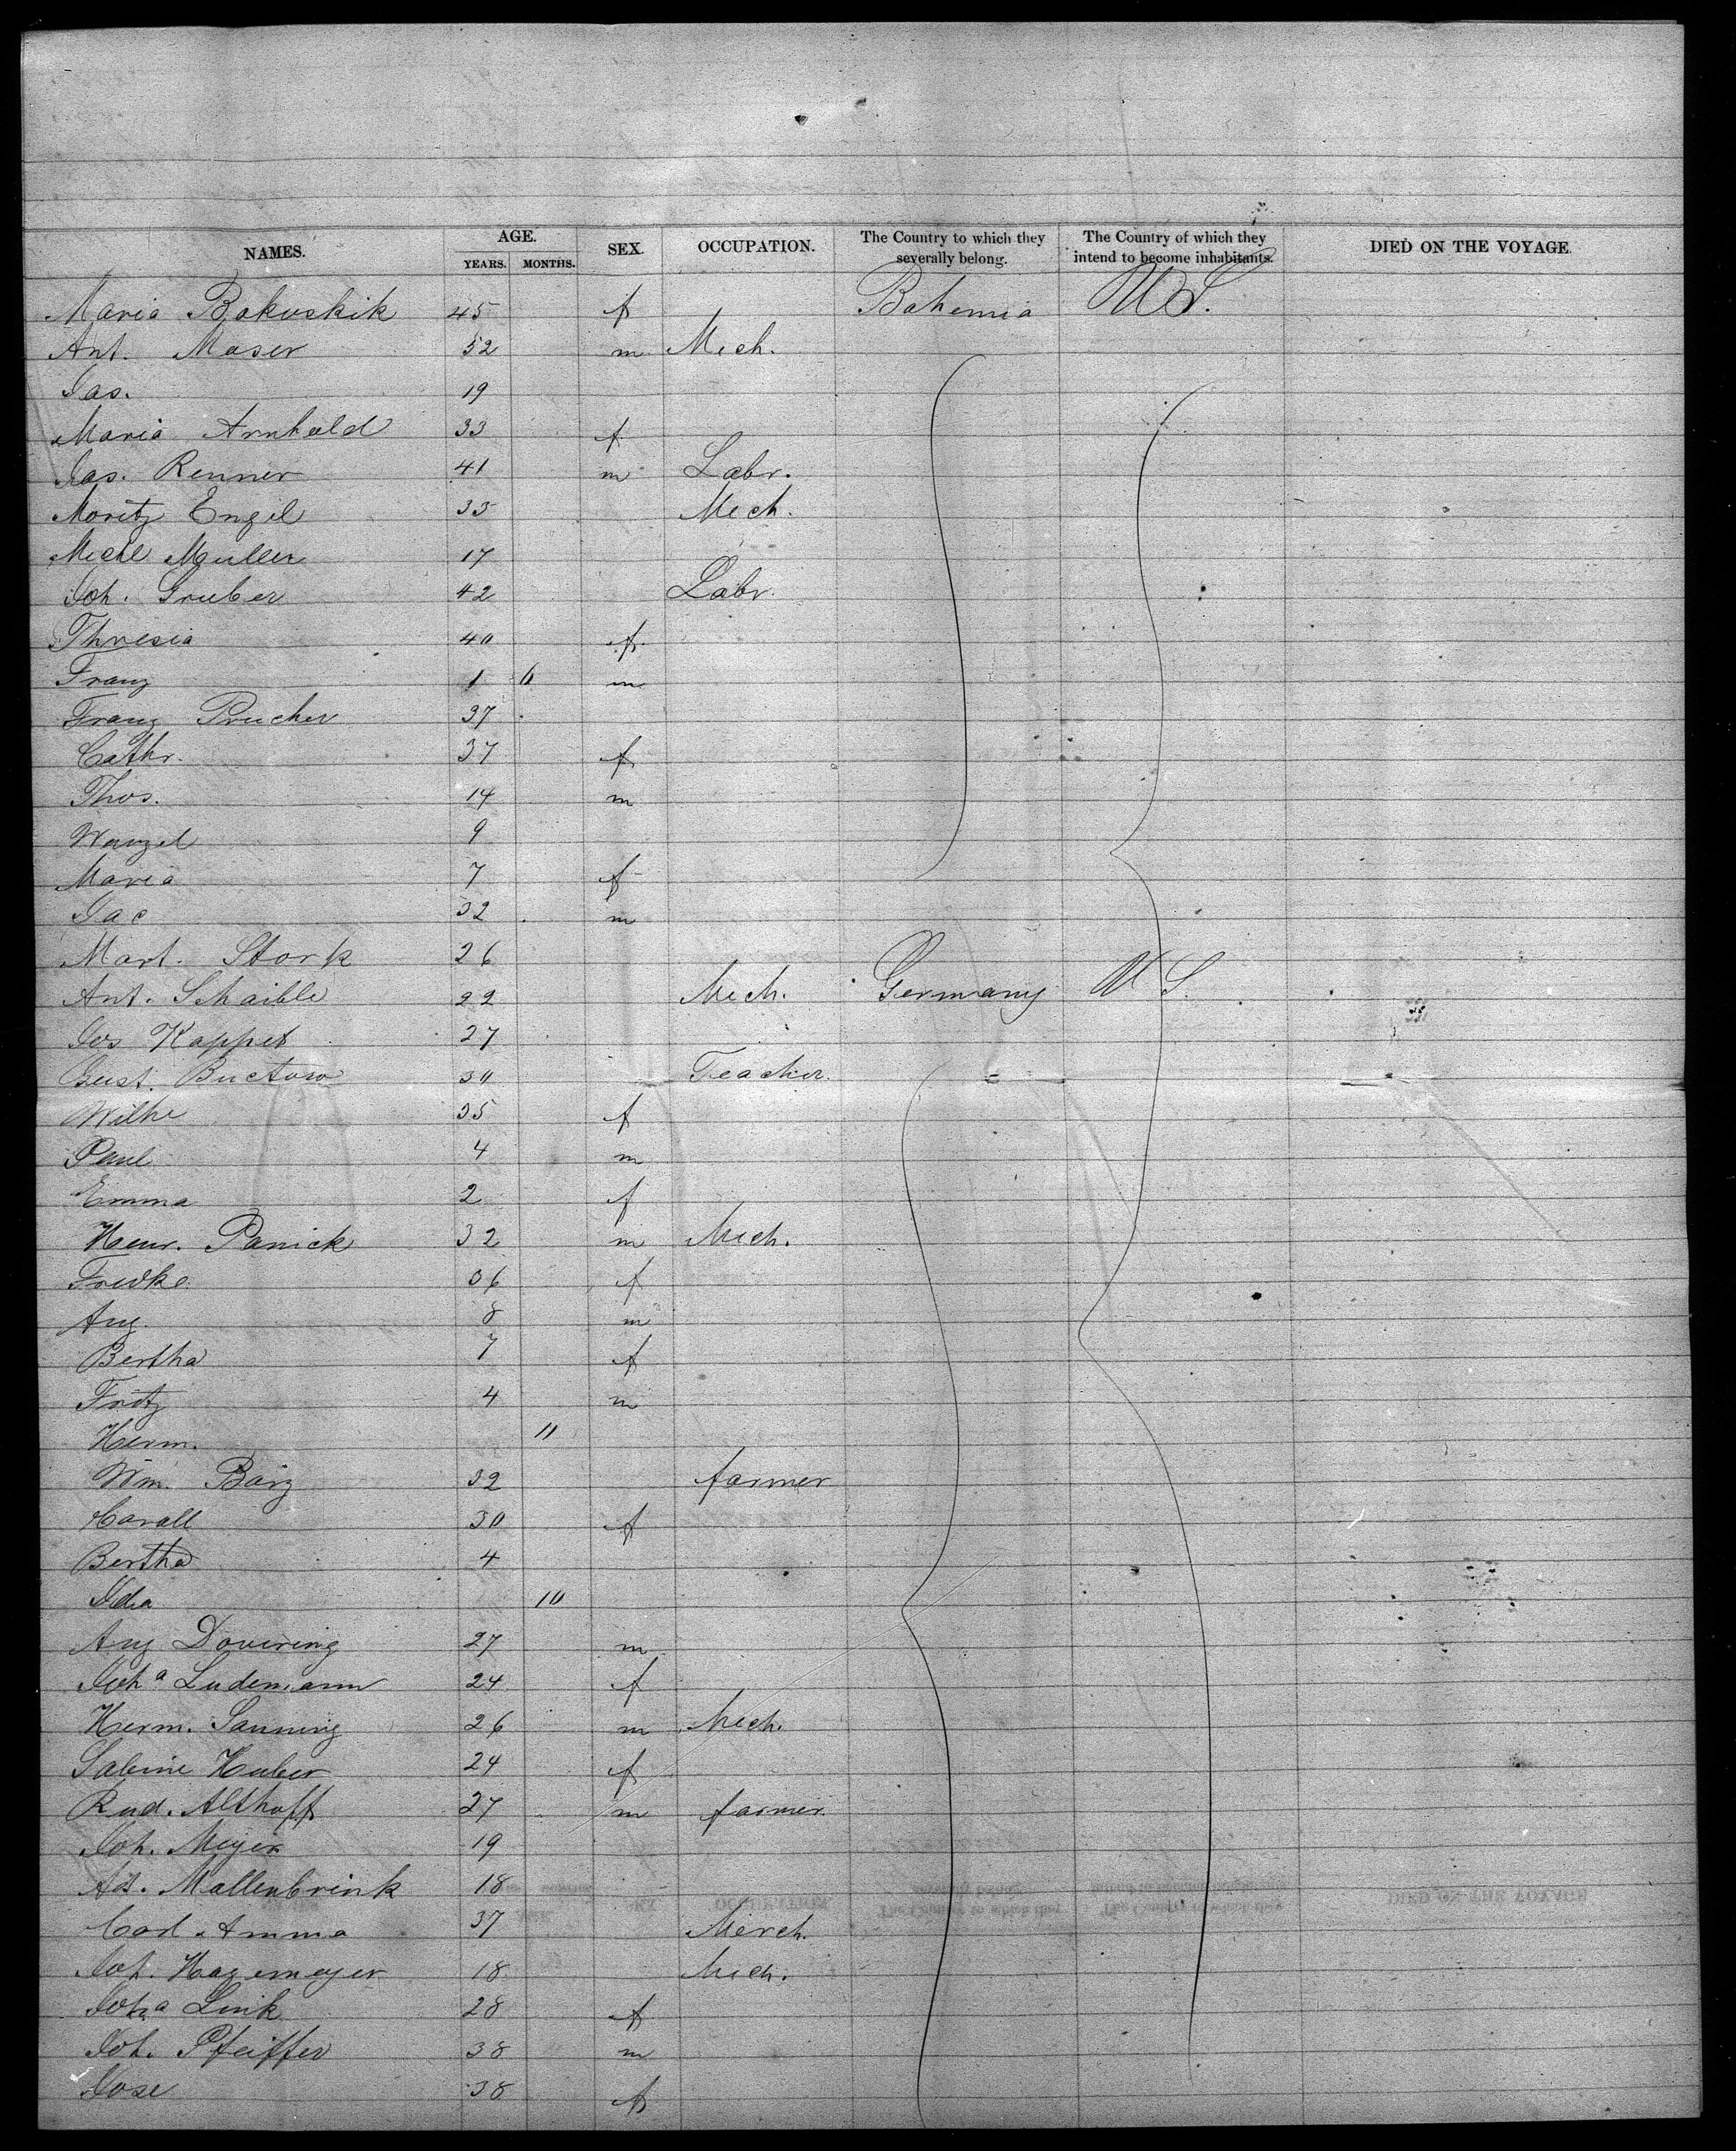 NAMES. AGE. YEARS. MONTHS. SEX. OCCUPATION. The Country to which they severally belong. The Country of which they intend to become inhabitants. DIED ON THE VOYAGE
Maria Bokuskik 45 f Bohemia U.S.
Ant. Moser 52 m Mech.
Jas. 19
Maria Arnhold 33 f
Jas. Renner 41 m Labr.
Moritz Engel 33 Mech.
Michl Muller 17
Joh. Gruber 42 Labr.
Thresia 40 f
Franz 1 11 m
Franz Prucher 37
Cathr. 37 f
Thos. 14 m
Wenzel 9
Maria 7 f
Jac 32 m
Mart. Stork 26
Ant. Schaible 22 Mech. Germany U S.
Jos Kappet 27
Gust. 30 Teacher.
Wilhe 35 f
Paul 4 m
Emma 2 f
Henr. Panick 32 m Mech.
Fredke 36 f
Aug. 8 m
Bertha 7 f
Fritz 4 m
Herm. 11
Wm. Barz 32 farmer
Caroll 30 f
Bertha 4
Ida 10
Aug Douering 27 m
Joha Ludemann 24 f
Herm. Sanning 26 m Mech.
Sabine Huber 24 f
Rud. Althoff 27 m farmer
Joh. Meyer 19
Ad. Mallenbrink 18
Carl Amma 37 Merch.
Joh. Hagemeyer 18 Mech.
Joha Link 28 f
Joh. Pfeiffer 38 m
Jose 38 f